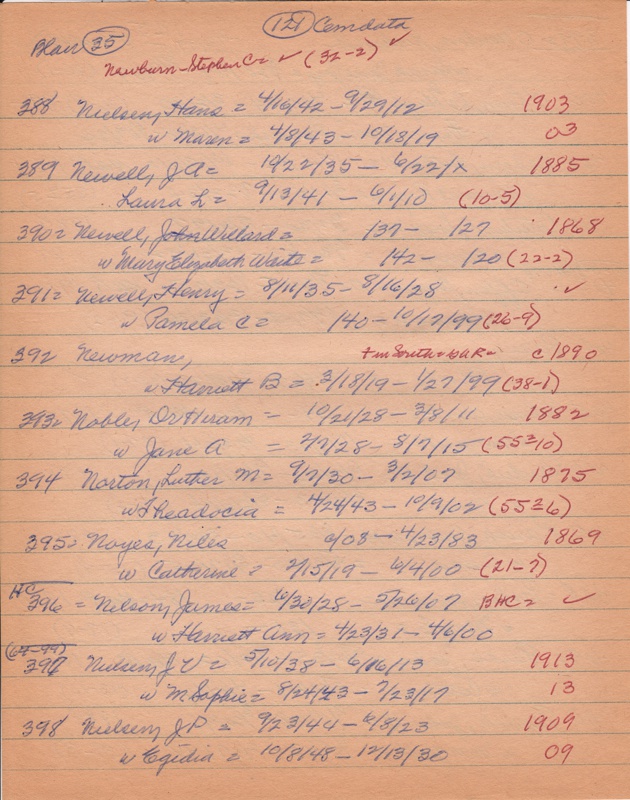 Blair 35 121 Cemdata
Newburn - Stephen C = ✓ (32-2) ✓
388 Nielsen, Hans = 4/16/42 - 9/29/12 1903
w Maren = 4/8/43 - 10/18/19 03
389 Newell, J A = 10/22/35 - 6/22/x 1885
Laura L = 9/13/41 - 6/1/10 (10-5)
390 = Newell, John Willard = 137 - 127 1868
w Mary Elizabeth Waite = 142 - 120 (22-2)
391 = Newell, Henry = 8/11/35 - 8/16/28 ✓
w Pamela C = 140 - 10/17/99 (26-9)
392 Newman, + in South = GAR = c 1890
w Harriett B = 3/18/19 - 1/27/99 (38-1)
393 = Noble, Dr Hiram = 10/21/28 - 3/8/11 1882
w Jane A = 2/7/28 - 8/7/15 (55=10)
394 Norton, Luther M = 9/7/30 - 3/2/07 1875
w Theadocia = 4/24/43 - 10/9/02 (55=6)
395 = Noyes, Niles c/08 - 4/23/83 1869
w Catherine = 2/15/19 - 6/4/00 (21-7)
HC
396 = Nelson, James = 6/30/28 - 5/26/07 BHC = ✓
w Harriett Ann = 4/23/31 - 4/6/00
397 Nielsen, J V = 5/10/38 - 6/16/13 1913
w M Sophie = 8/24/43 - 7/23/17 13
398 Nielsen, J P = 9/23/44 - 6/8/23 1909
w Egidia = 10/8/48 - 12/13/30 09